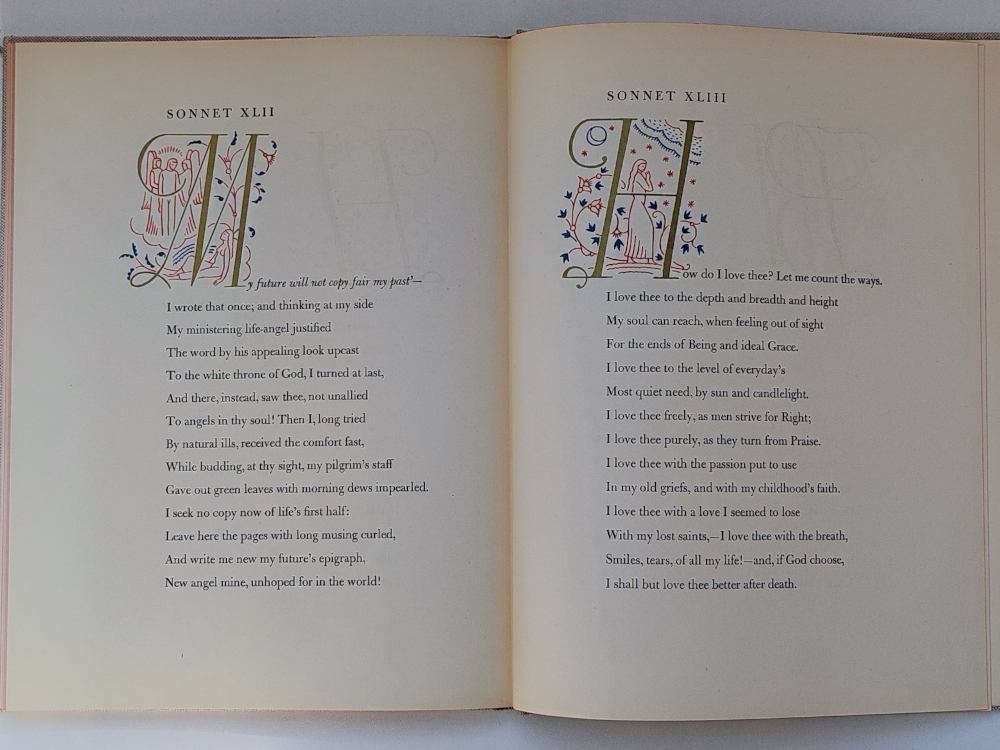 SONNET XLII
My future will not copy fair my past'—
I wrote that once; and thinking at my side
My ministering life-angel justified
The word by his appealing look upcast
To the white throne of God, I turned at last,
And there, instead, saw thee, not unallied
To angels in thy soul! Then I, long tried
By natural ills, received the comfort fast,
While budding, at thy sight, my pilgrim's staff
Gave out green leaves with morning dews impearled.
I seek no copy now of life's first half:
Leave here the pages with long musing curled,
And write me new my future's epigraph,
New angel mine, unhoped for in the world!
SONNET XLIII
How do I love thee? Let me count the ways.
I love thee to the depth and breadth and height
My soul can reach, when feeling out of sight
For the ends of Being and ideal Grace.
I love thee to the level of everyday's
Most quiet need, by sun and candlelight.
I love thee freely, as men strive for Right;
I love thee purely, as they turn from Praise.
I love thee with the passion put to use
In my old griefs, and with my childhood's faith.
I love thee with a love I seemed to lose
With my lost saints,—I love thee with the breath,
Smiles, tears, of all my life!—and, if God choose,
I shall but love thee better after death.